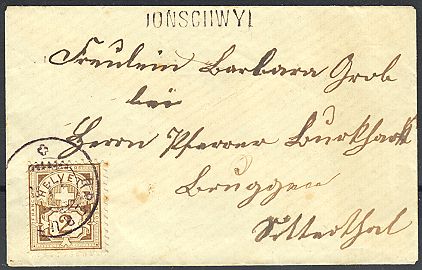 JONSCHWYL
Fräulein Barbara Grob
bei
Herrn Pfarrer Burkhardt
Bruggen
Sitterthal
HELVETIA
2